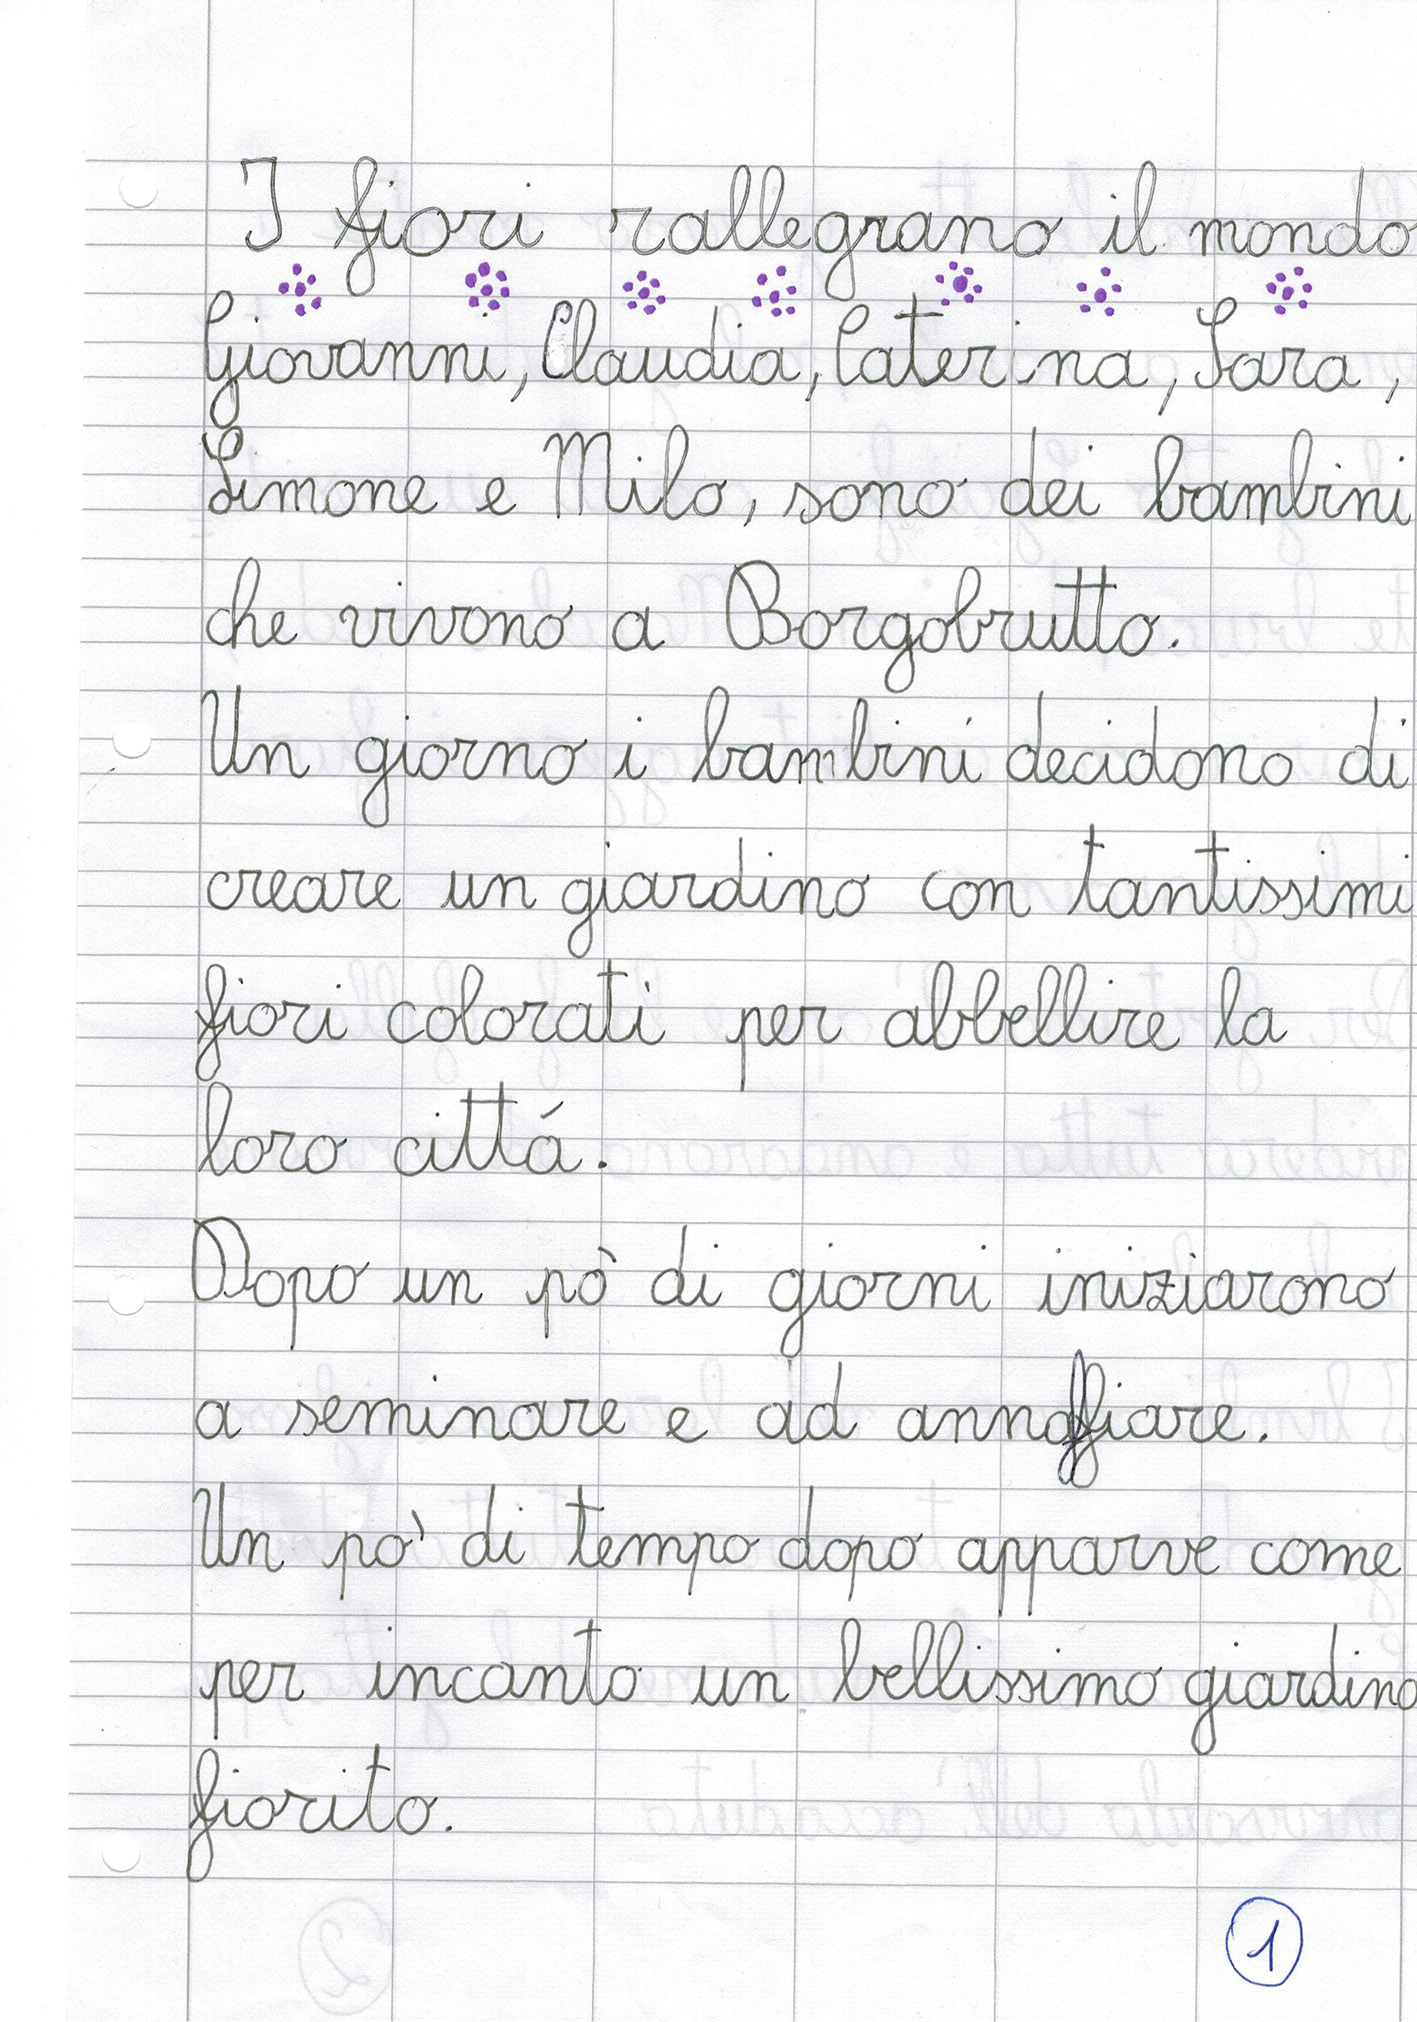 I fiori rallegrano il mondo
Giovanni, Claudia, Caterina, Sara,
Simone e Milo, sono dei bambini
che vivono a Borgobrutto.
Un giorno i bambini decidono di
creare un giardino con tantissimi
fiori colorati per abbellire la
loro cittá.
Dopo un pò di giorni iniziarono
a seminare e ad annaffiare.
Un po' di tempo dopo apparve come
per incanto un bellissimo giardino
fiorito.
1